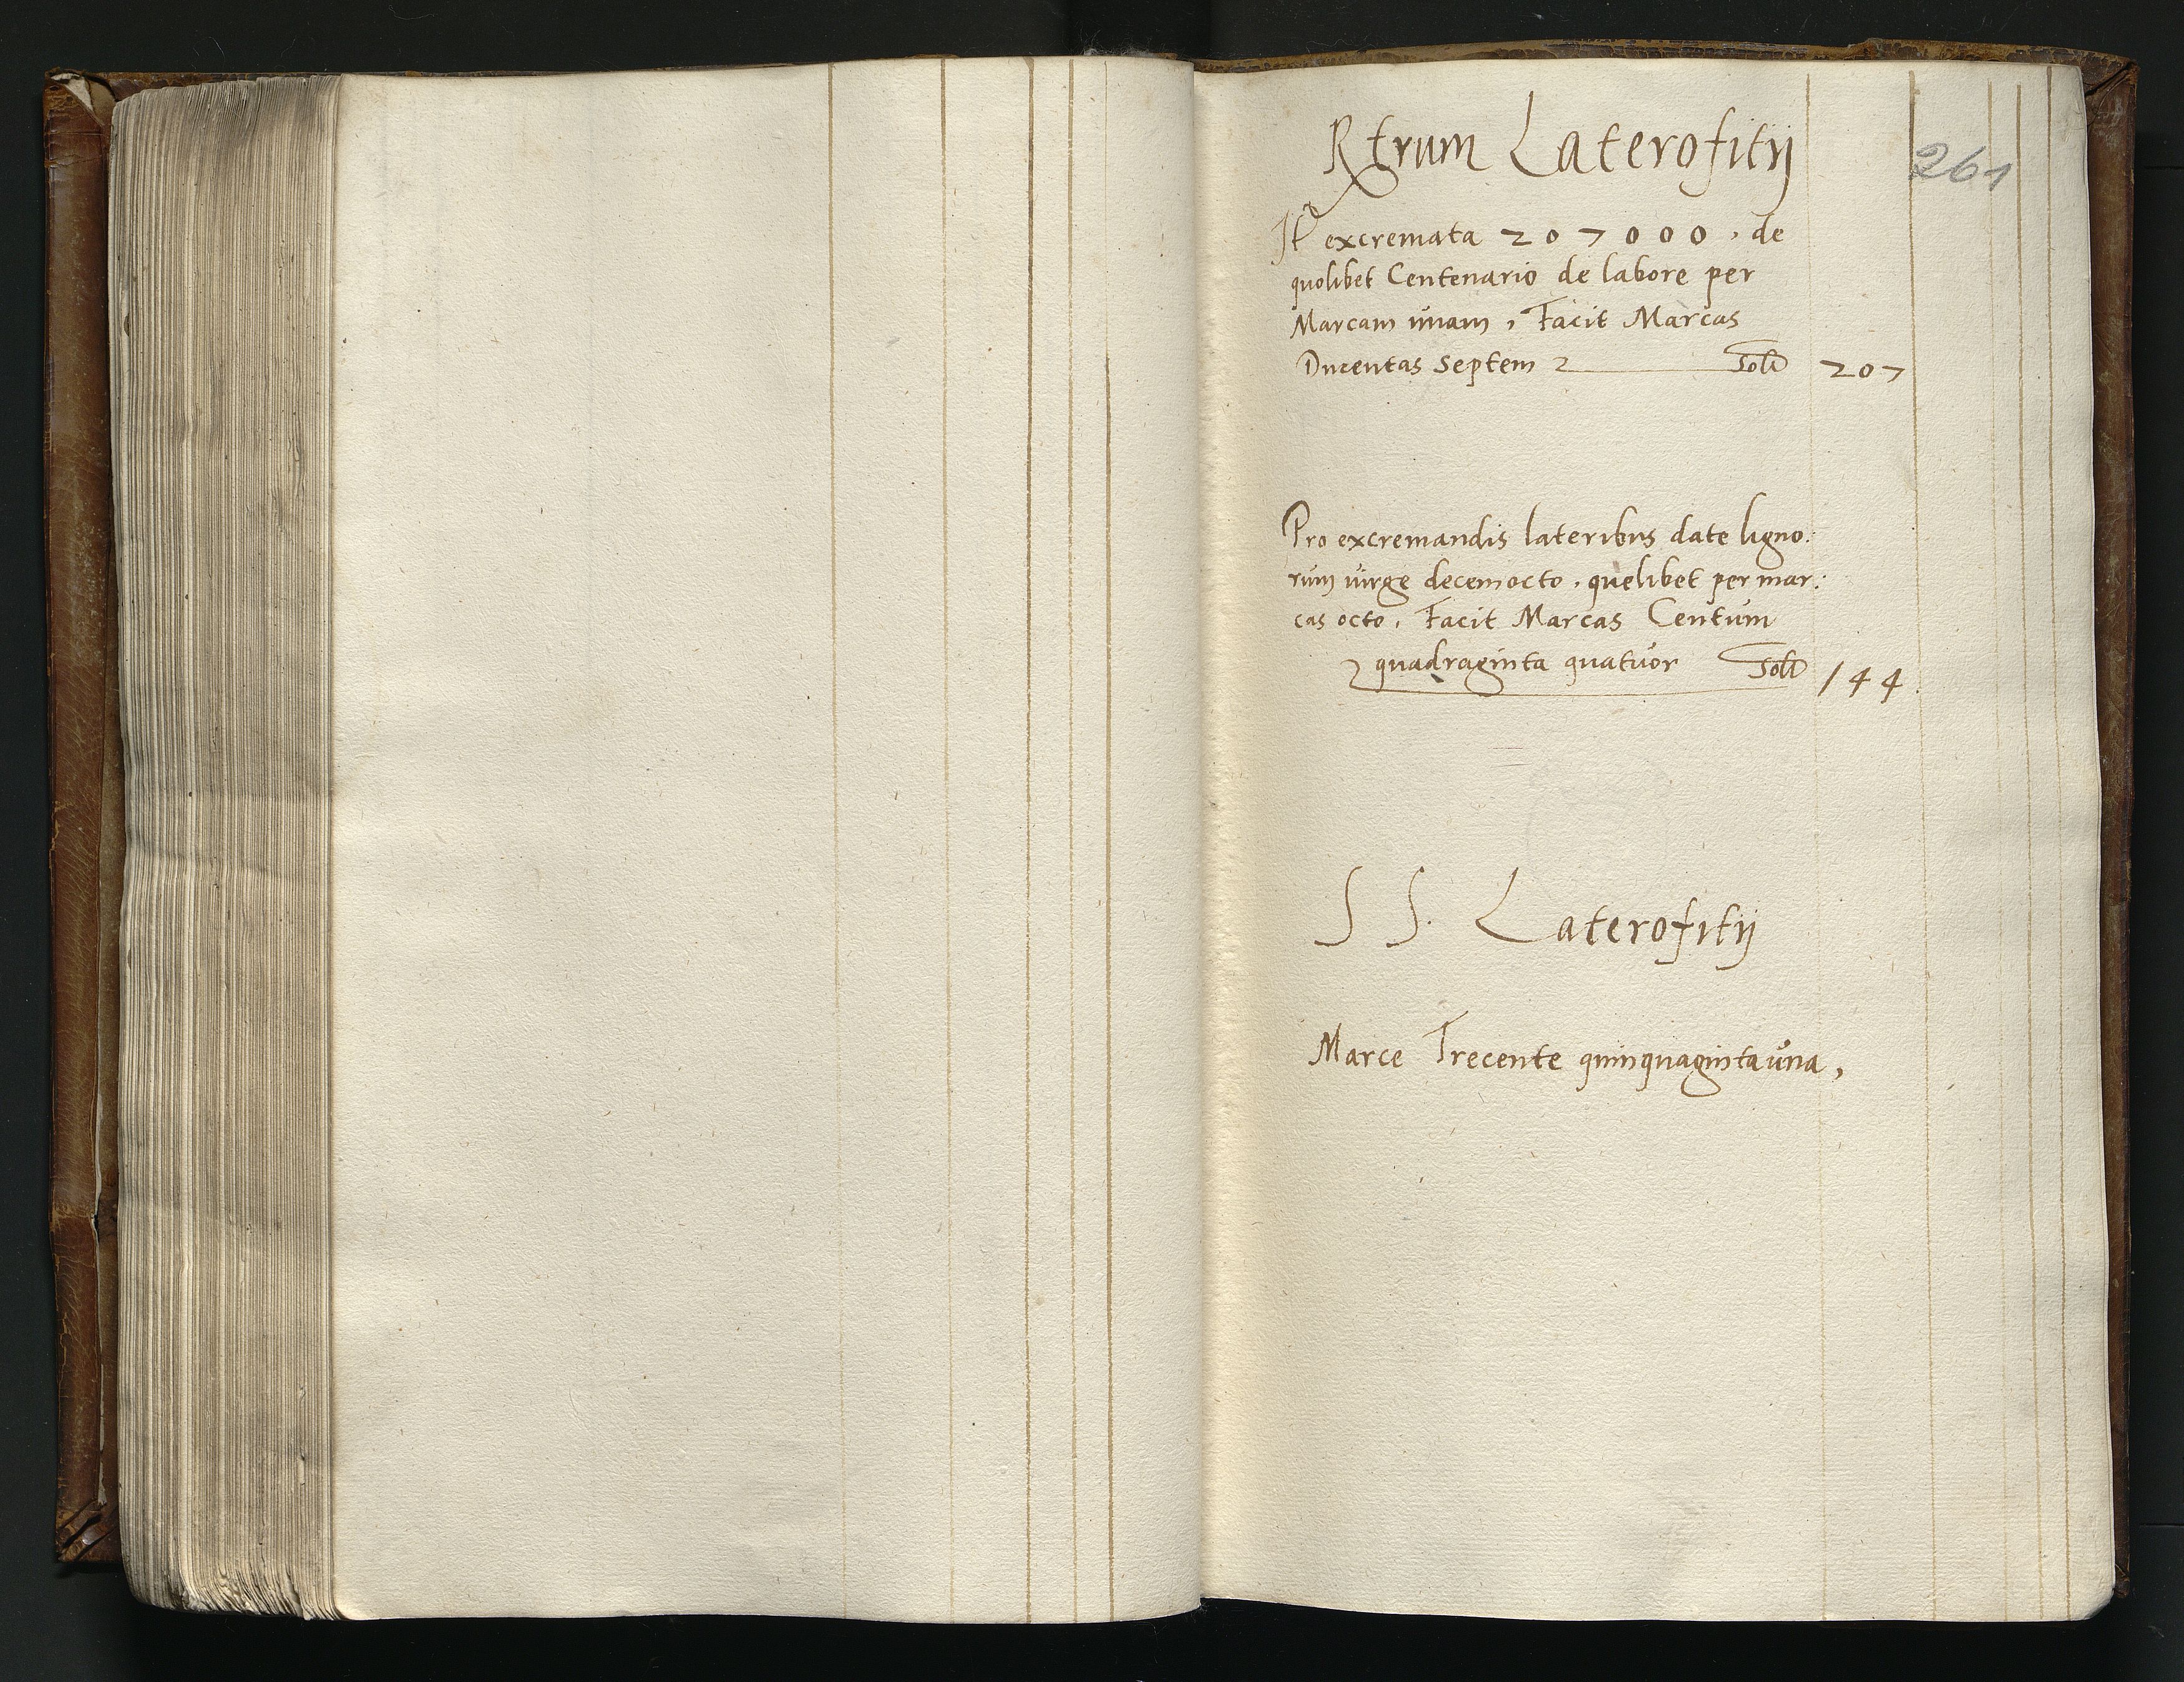 Rtrum Laterofitij
261
It excremata 207000, de
quolibet Centenario de labore per
Marcam unam, Facit Marcas
Ducentas Septem 207
Pro excremandis lateribus date ligno:
rum virge decemocto, quelibet per mar:
cas octo, Facit Marcas Centum
quadraginta quatuor 144
S S. Laterofitij
Marce Trecente quinquaginta una,